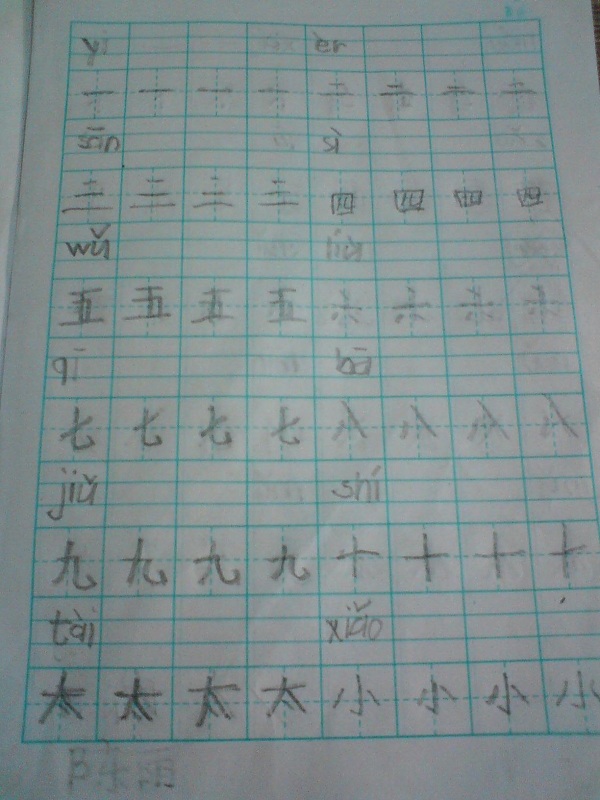 yī èr
一 一 一 一 二 二 二 二
sān sì
三 三 三 三 四 四 四 四
wǔ liù
五 五 五 五 六 六 六 六
qī bā
七 七 七 七 八 八 八 八
jiǔ shí
九 九 九 九 十 十 十 十
tài xiǎo
太 太 太 太 小 小 小 小